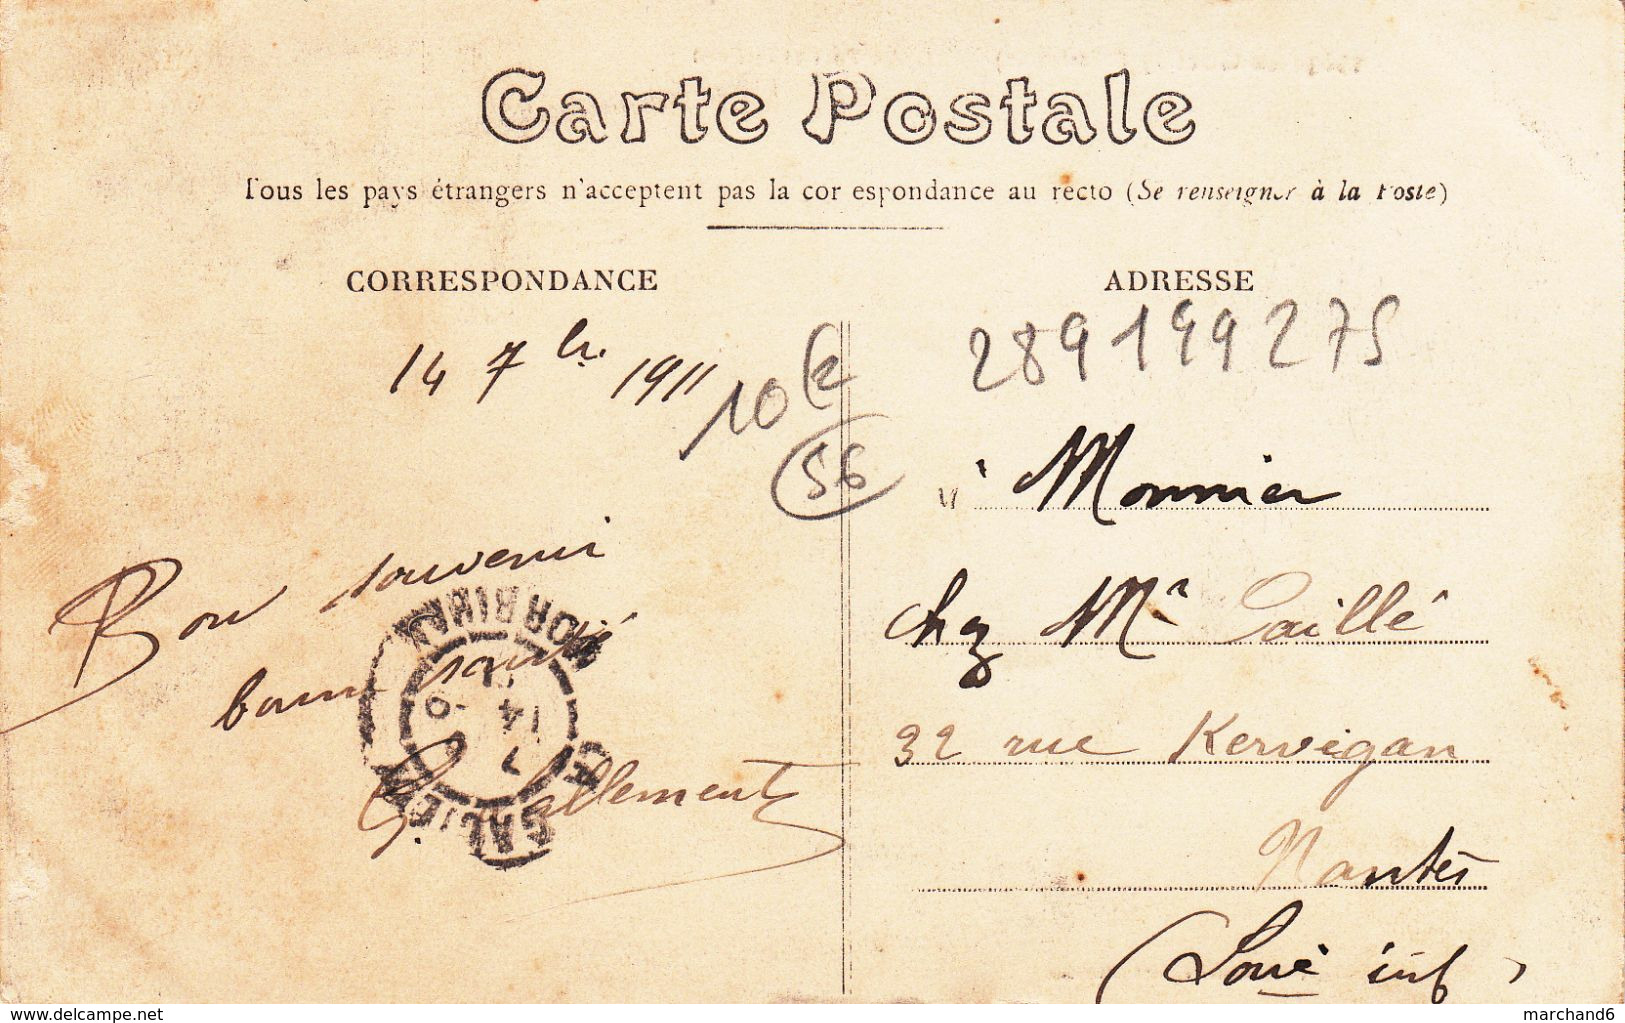 Carte Postale
Tous les pays étrangers n'acceptent pas la cor espondance au recto (Se renseigner à la Poste)
CORRESPONDANCE
14 7bre 1911
10
56
Bon souvenir
bonne santé
G. allement
MORBIHAN
14
7
ADRESSE
289199275
Monnier
chez Mr Caillé
32 rue Kervigan
Nantes
(Loire inf)
www.delcampe.net
marchand6